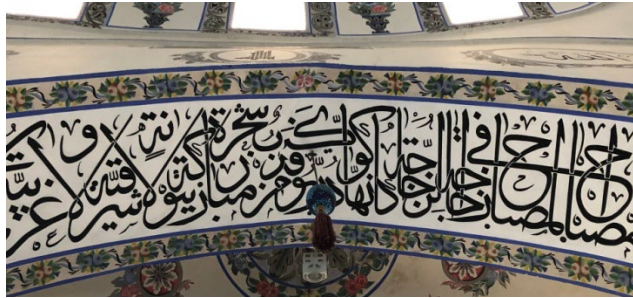 مصباح المصباح في زجاجة الزجاجة كأنها كوكب دري يوقد من شجرة مباركة زيتونة لا شرقية ولا غربية